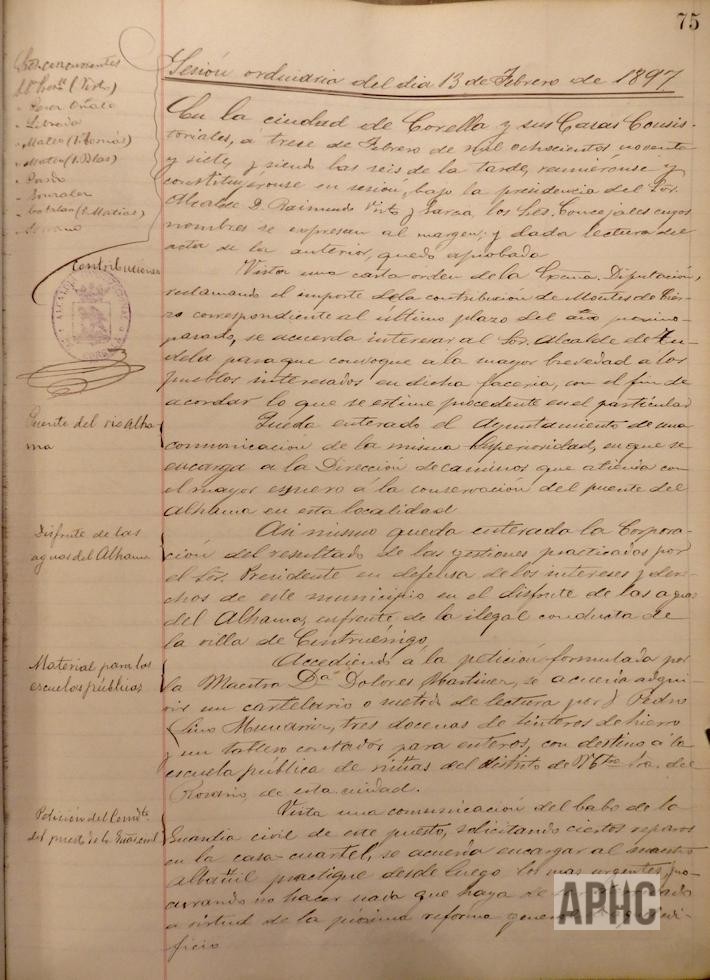 75
Sesión ordinaria del dia 13 de Febrero de 1897
Sres. concurrentes
(Virto)
" Perez Oñate
"
" Mateo (D. Tomás)
" Mateo (D. Blas)
" Pardo
" Gonzalez
" Catalan (D. Matias)
" Serrano
En la ciudad de Corella y sus Casas Consis-
toriales, á trece de Febrero de mil ochocientos noventa
y siete, y siendo las seis de la tarde, reuniéronse y
constituyéronse en sesión, bajo la presidencia del Sor.
Alcalde D. Raimundo Virto y Garca, los Sres. Concejales cuyos
nombres se expresan al margen; y dada lectura del
acta de la anterior, quedó aprobada
Contribuciones
Vista una carta orden de la Excma. Diputación,
reclamando el importe de la contribución de Montes de Cier-
zo correspondiente al último plazo del año proximo
pasado, se acuerda interesar al Sor. Alcalde de Tu-
dela para que convoque a la mayor brevedad a los
pueblos interesados en dicha faceria, con el fin de
acordar lo que se estime procedente en el particular
Puente del rio Alha-
ma
Queda enterado el Ayuntamiento de una
comunicación de la misma Superioridad, en que se
encarga a la Dirección de caminos que atienda con
el mayor esmero á la conservación del puente del
Alhama en esta localidad
Disfrute de las
aguas del Alhama
Asi mismo queda enterada la Corpora-
ción del resultado de las gestiones practicadas por
el Sor. Presidente en defensa de los intereses y dere-
chos de este municipio en el disfrute de las aguas
del Alhama, enfrente de la ilegal conducta de
la villa de Cintruénigo
Material para las
escuelas públicas
Accediendo á la petición formulada por
la Maestra Dª Dolores Martinez, se acuerda adqui-
rir un cartelario o metodo de lectura por D. Pedro
Lino Munarriz, tres docenas de tinteros de hierro
y un tablero contador para enteros, con destino á la
escuela pública de niñas del distrito de Ntra. Sra. del
Rosario de esta ciudad.
Petición del Comdte.
del puesto de la Guar. civil
Vista una comunicación del Cabo de la
Guardia civil de este puesto, solicitando ciertos reparos
en la casa-cuartel, se acuerda encargar al maestro
albañil practique desde luego los mas urgentes, pro-
curando no hacer nada que haya de
a virtud de la próxima reforma general
ficio
APHC